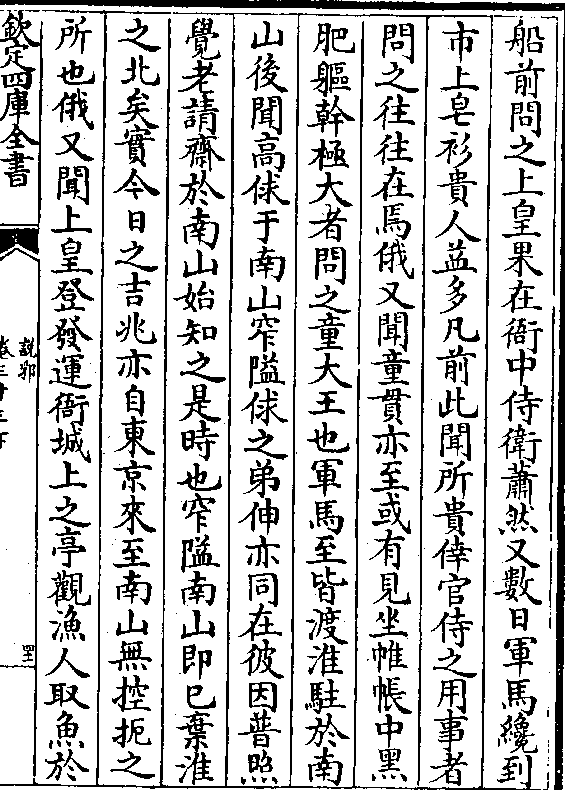 船前問之上皇果在衙中侍衛蕭然又數日軍馬纔到
市上皂衫貴人益多凡前此聞所貴倖官侍之用事者
問之往往在焉俄又聞童貫亦至或有見坐帷帳中黑
肥軀幹極大者問之童大王也軍馬至皆渡淮駐於南
山後聞高俅于南山窄隘俅之弟伸亦同在彼因普照
覺老請齋於南山始知之是時也窄隘南山即已棄淮
之北矣實今日之吉兆亦自東京來至南山無控扼之
所也俄又聞上皇登發運衙城上之亭觀漁人取魚於
欽定四庫全書
說郛
卷三十三下